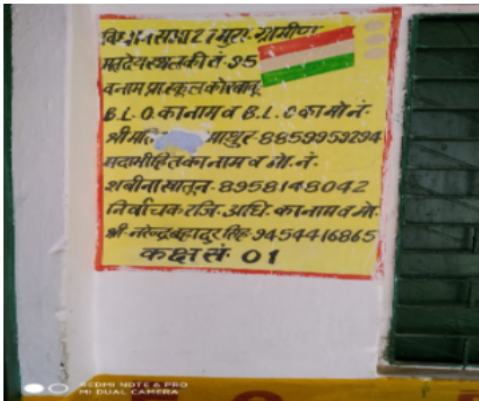 विधानसभा 27 मुरा. ग्रामीण
मतदेय स्थल की सं. 95
व नाम प्रा. स्कूल
B.L.O. का नाम व B.L.O का मो नं.
श्री माथुर-8859959294
पदाभीहित का नाम व मो. नं.
शबीना खातून-8958148042
निर्वाचक रजि. अधि. का नाम व मो.
श्री नरेन्द्र बहादुर सिंह-9454416865
कक्ष सं. 01
REDMI NOTE 6 PRO
MI DUAL CAMERA